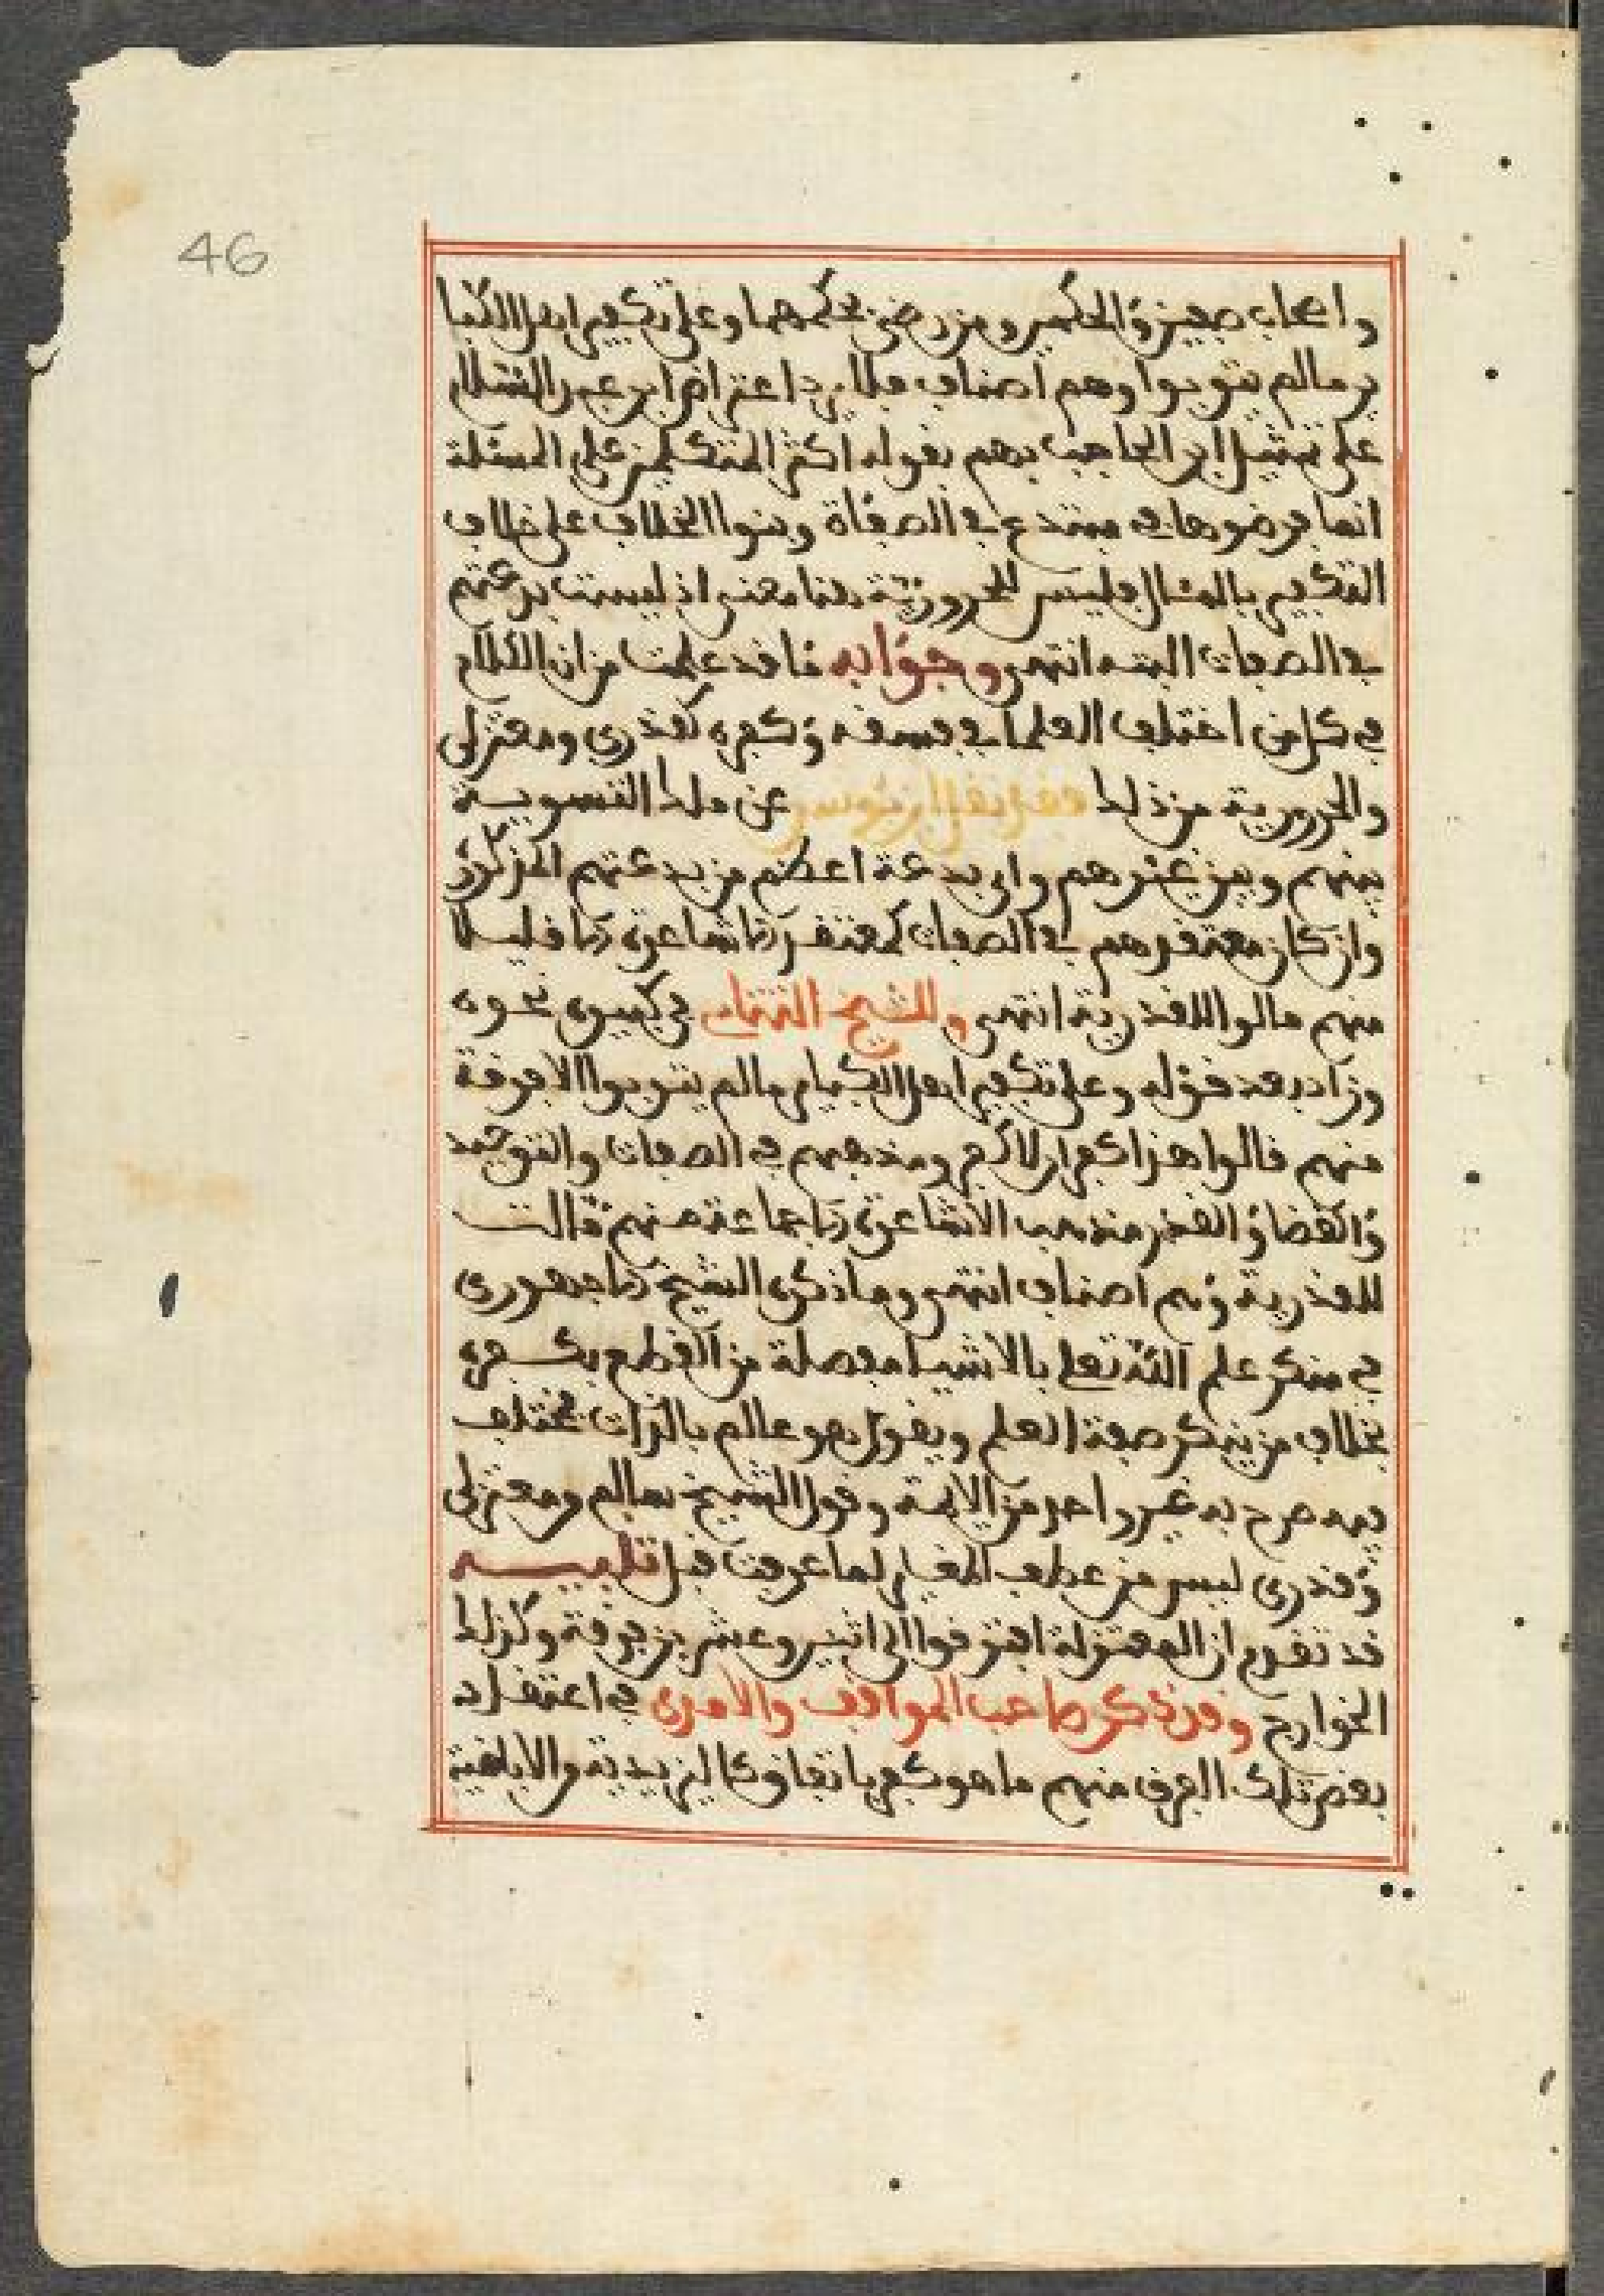 46
واصحاب صفين والحكمين ومن رضي بحكمهما وعلى تكفير اهل الكبا
ير ما لم يتوبوا وهم اصناف فلا يرد اعتراض ابن عبد السلام
على تمثيل ابن الحاجب بهم بقوله اكثر المتكلمين على المسئلة
انما فرضوها في مبتدع في الصفاة وبنوا الخلاف على خلاف
التكفير بالمئال فليس للحرورية هنا معنى اذ ليست بدعتهم
في الصفات البتة انتهى وجوابه ما قد علمت من ان الكلام
في كل من اختلف العلما في فسقه وكفره كقدري ومعتزلي
والحرورية من ذلك فقد نقل ابن يونس عن ملك التسوية
بينهم وبين غيرهم واي بدعة اعظم من بدعتهم المذكورة
وان كان معتقدهم في الصفات كمعتقد الاشاعرة الا قليلا
منهم مالوا للقدرية انتهى وللشيخ التتاي في كبيره نحوه
وزاد بعد قوله وعلى تكفير اهل الكباير ما لم يتوبوا الا فرقة
منهم قالوا هذا كفر لا كفر ومذهبهم في الصفات والتوحيد
والقضا والقدر مذهب الاشاعرة الا جماعة منهم قالت
للقدرية وهم اصناف انتهى وما ذكره الشيخ الاجهوري
في منكر علم الله تعلى بالاشيا مفصلة من القطع بكفره
بخلاف من ينكر صفة العلم ويقول هو عالم بالذات مختلف
فيه صرح به غير واحد من الايمة وقول الشيخ سالم ومعتزلي
وقدري ليس من عطف المغاير لما عرفت قبل تنبيه
قد تقدم ان المعتزلة افترقوا الى اثنين وعشرين فرقة وكذلك
الخوارج وقد ذكر صاحب المواقف والامدي في اعتقاد
بعض تلك الفرق منهم ما هو كفر باتفاق كاليزيدية والاباضية